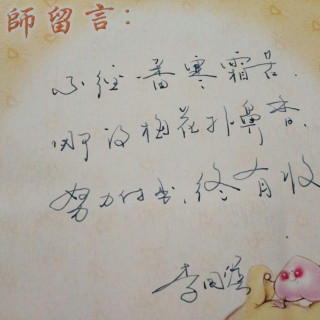 師留言：
不经一番寒霜苦.
哪得梅花扑鼻香.
努力付出,终有收
李国